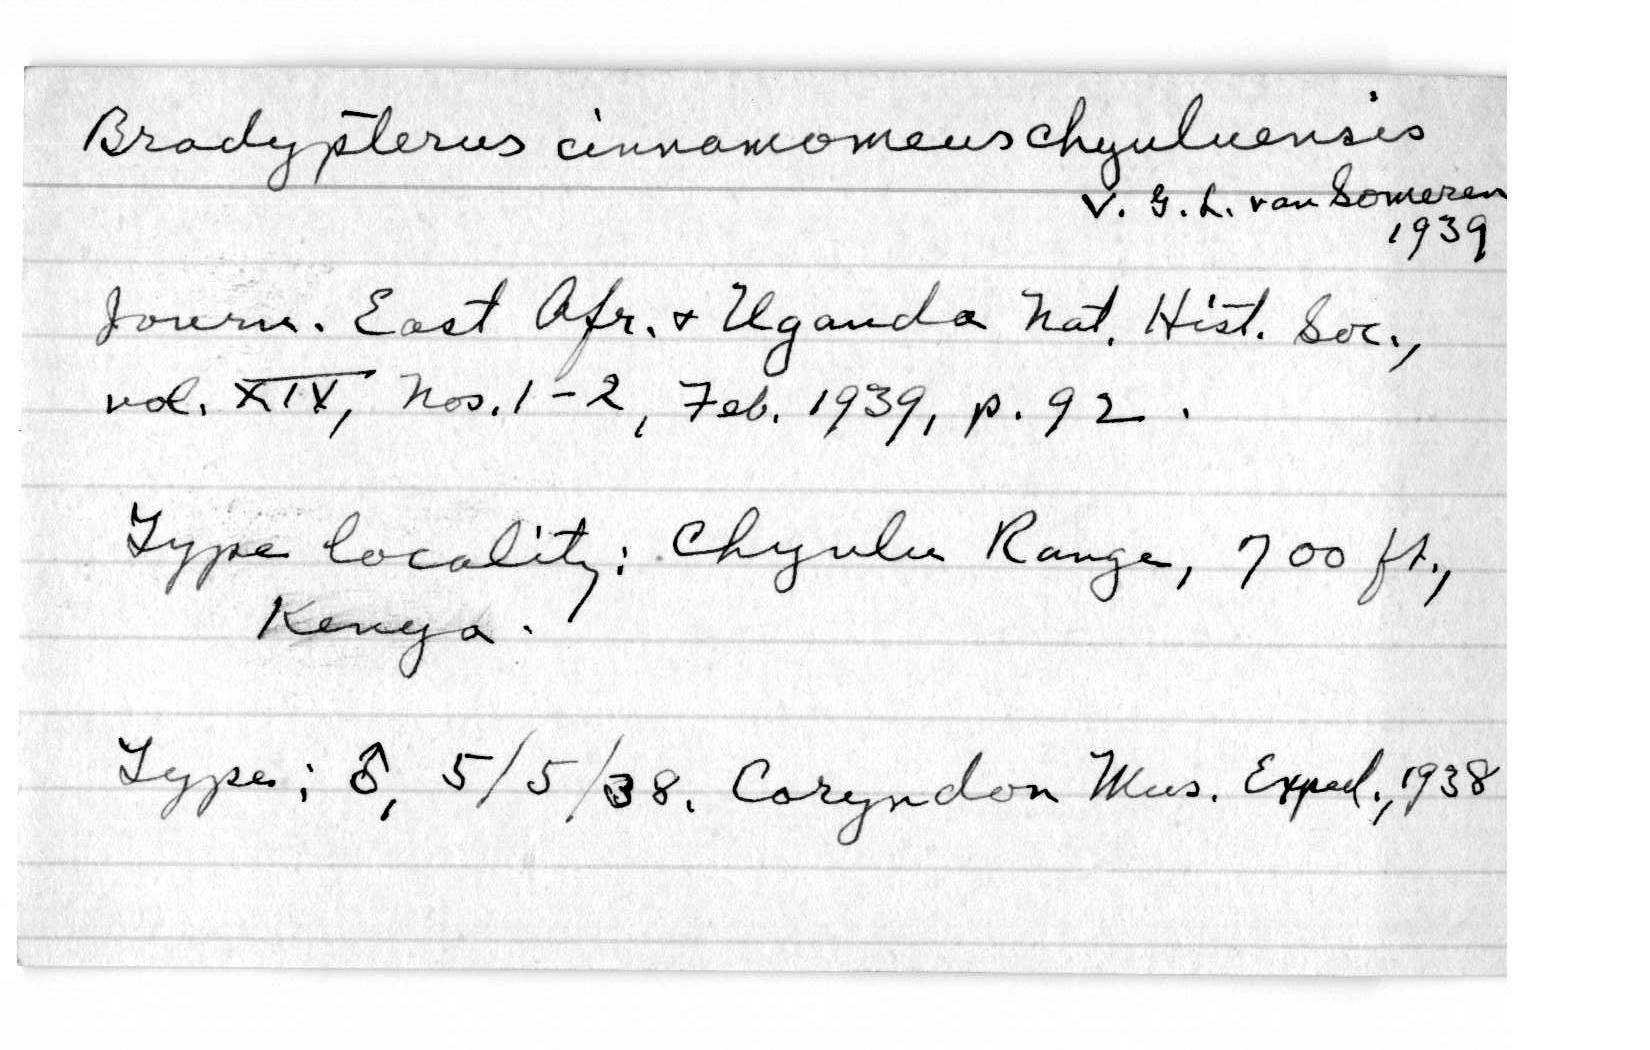 Bradypterus cinnamomeus chyuluensis
V. G. L. van Someren
1939
Journ. East Afr. & Uganda Nat. Hist. Soc.,
vol. XIV, Nos. 1-2, Feb. 1939, p. 92.
Type locality: Chyulu Range, 700 ft.,
Kenya.
Type: ♂, 5/5/38. Coryndon Mus. Exped., 1938